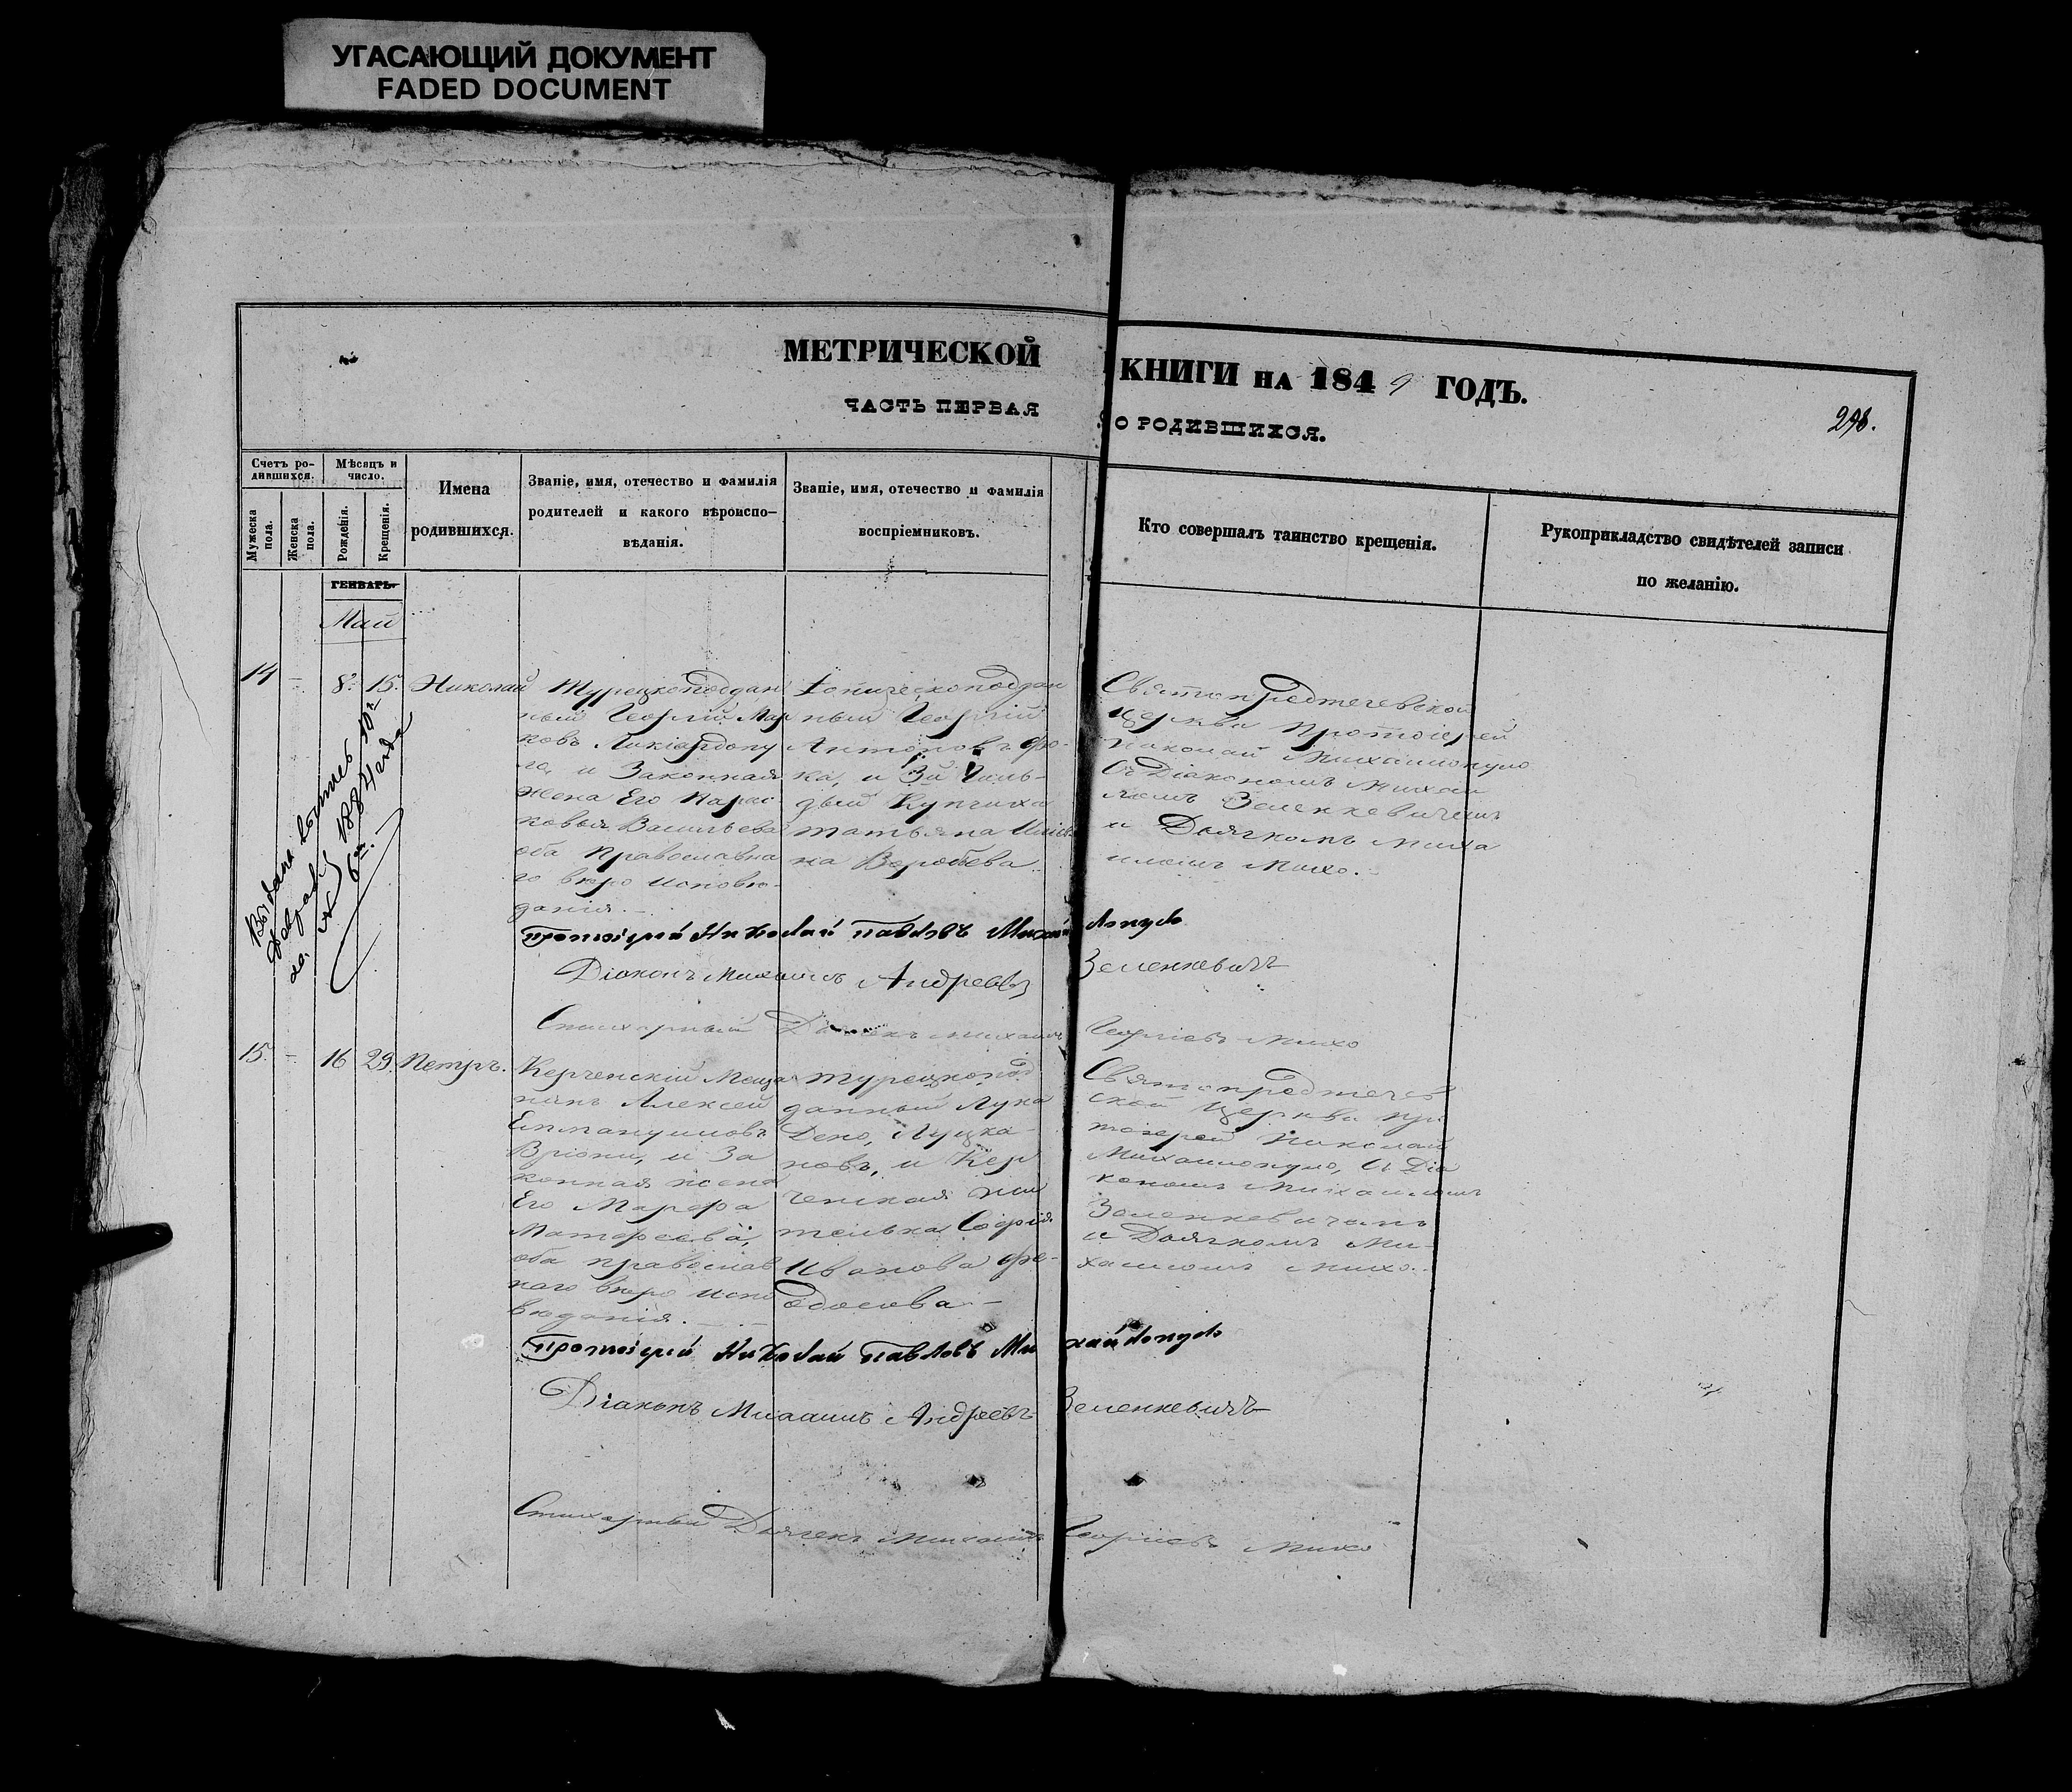 УГАСАЮЩИЙ ДОКУМЕНТ
FADED DOCUMENT
МЕТРИЧЕСКОЙ КНИГИ НА 1849 ГОДЪ.
ЧАСТЬ ПЕРВАЯ О РОДИВШИХСЯ.
298.
Счетъ ро-
дившихся.
Мужеска пола.
Женска пола.
Мѣсяцъ и
число.
Рожденія.
Крещенія.
Имена
родившихся.
Званіе, имя, отечество и фамилія
родителей и какого вѣроиспо-
вѣданія.
Званіе, имя, отечество и фамилія
воспріемниковъ.
Кто совершалъ таинство крещенія.
Рукоприкладство свидѣтелей записи
по желанію.
ГЕНВАРЬ
Май
14
-
8.
15.
Николай
Турецкоподдан
ный Георгій Мар
ковъ Ликіардопу
ло, и Законная
жена Его Парас
ковья Васильева
оба Православна
го вѣро исповѣ-
данія.
ный Георгій
Антоновъ Фо-
ка, и 3й Гиль-
діи Купчиха
татьяна
на Воробева
Святопредтечевской
Церкви Протоіерей
Николай Михаилопуло
Съ Діакономъ Михаи
ломъ Зеленкевичемъ
и Дьячкомъ Миха
иломъ Михо.
Выдана
1884 года
Протоіерей Николай Павловъ Михайлопуло
Діаконъ Михаилъ Андреевъ Зеленкевичъ
Стихарный Дьячекъ Михаилъ Георгіевъ Михо
15.
-
16
29
Петръ.
Керченскій Меща
нинъ Алексей
Еммануиловъ
Вріони, и За
конная жена
Его Марфа
Матфеева,
оба православ
наго вѣро испо
вѣданія.
Турецкопод
данный Лука
Дено, Луцка-
новъ, и Кер
ченская жи
телька Софія
Иванова Фе-
одосова
Святопредтечев
ской Церкви про
тоіерей Николай
Михаилопуло, Съ Діа
кономъ Михаиломъ
Зеленкевичемъ
и Дьячкомъ Ми-
хаиломъ Михо.
Протоіерей Николай Павловъ Михайлопуло
Діаконъ Михаилъ Андреевъ Зеленкевичъ
Стихарный Дьячекъ Михаилъ Георгіевъ Михо